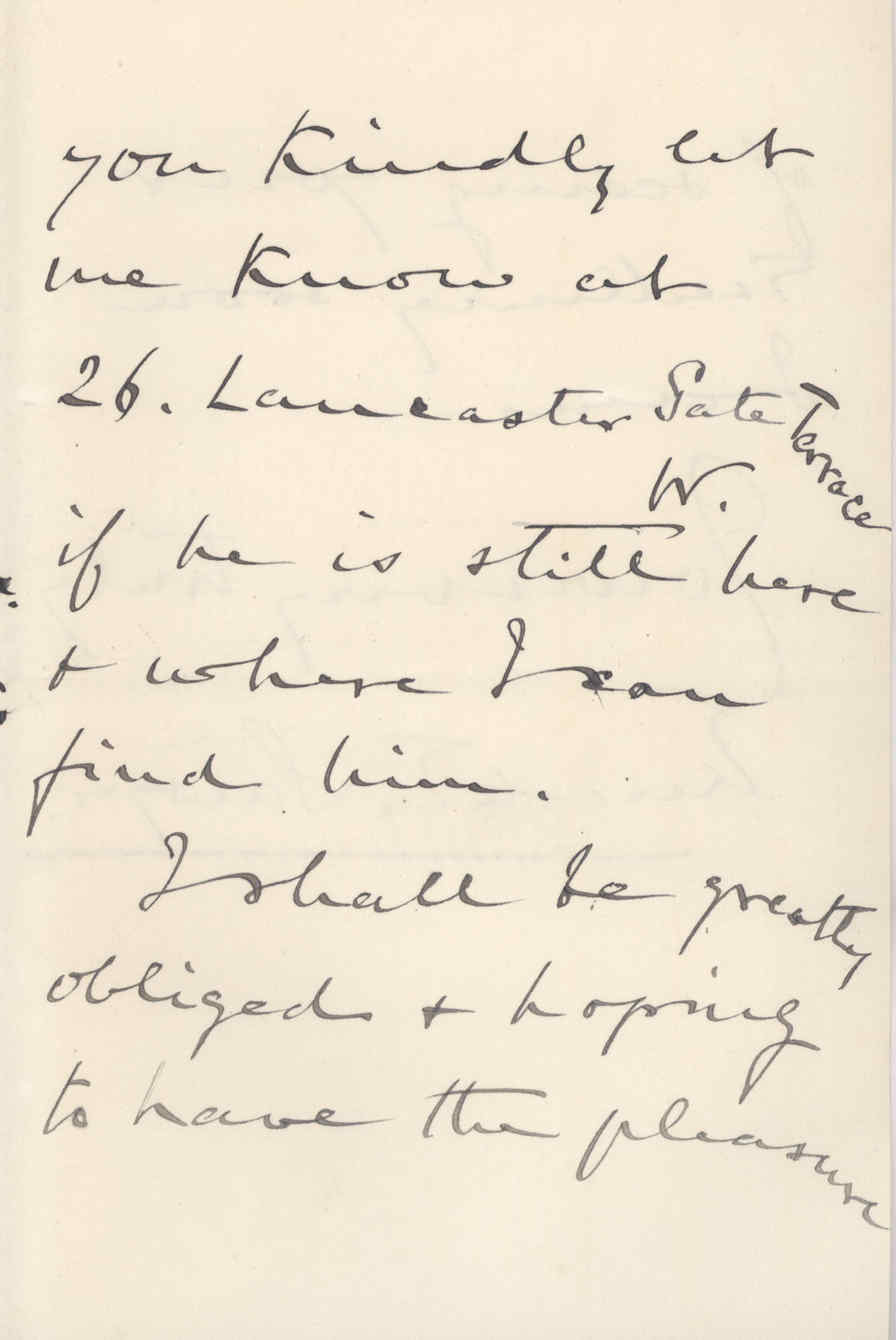 you kindly let
me know at
26. Lancaster Gate Terrace
W.
if he is still here
& where I can
find him.
I shall be greatly
obliged & hoping
to have the pleasure